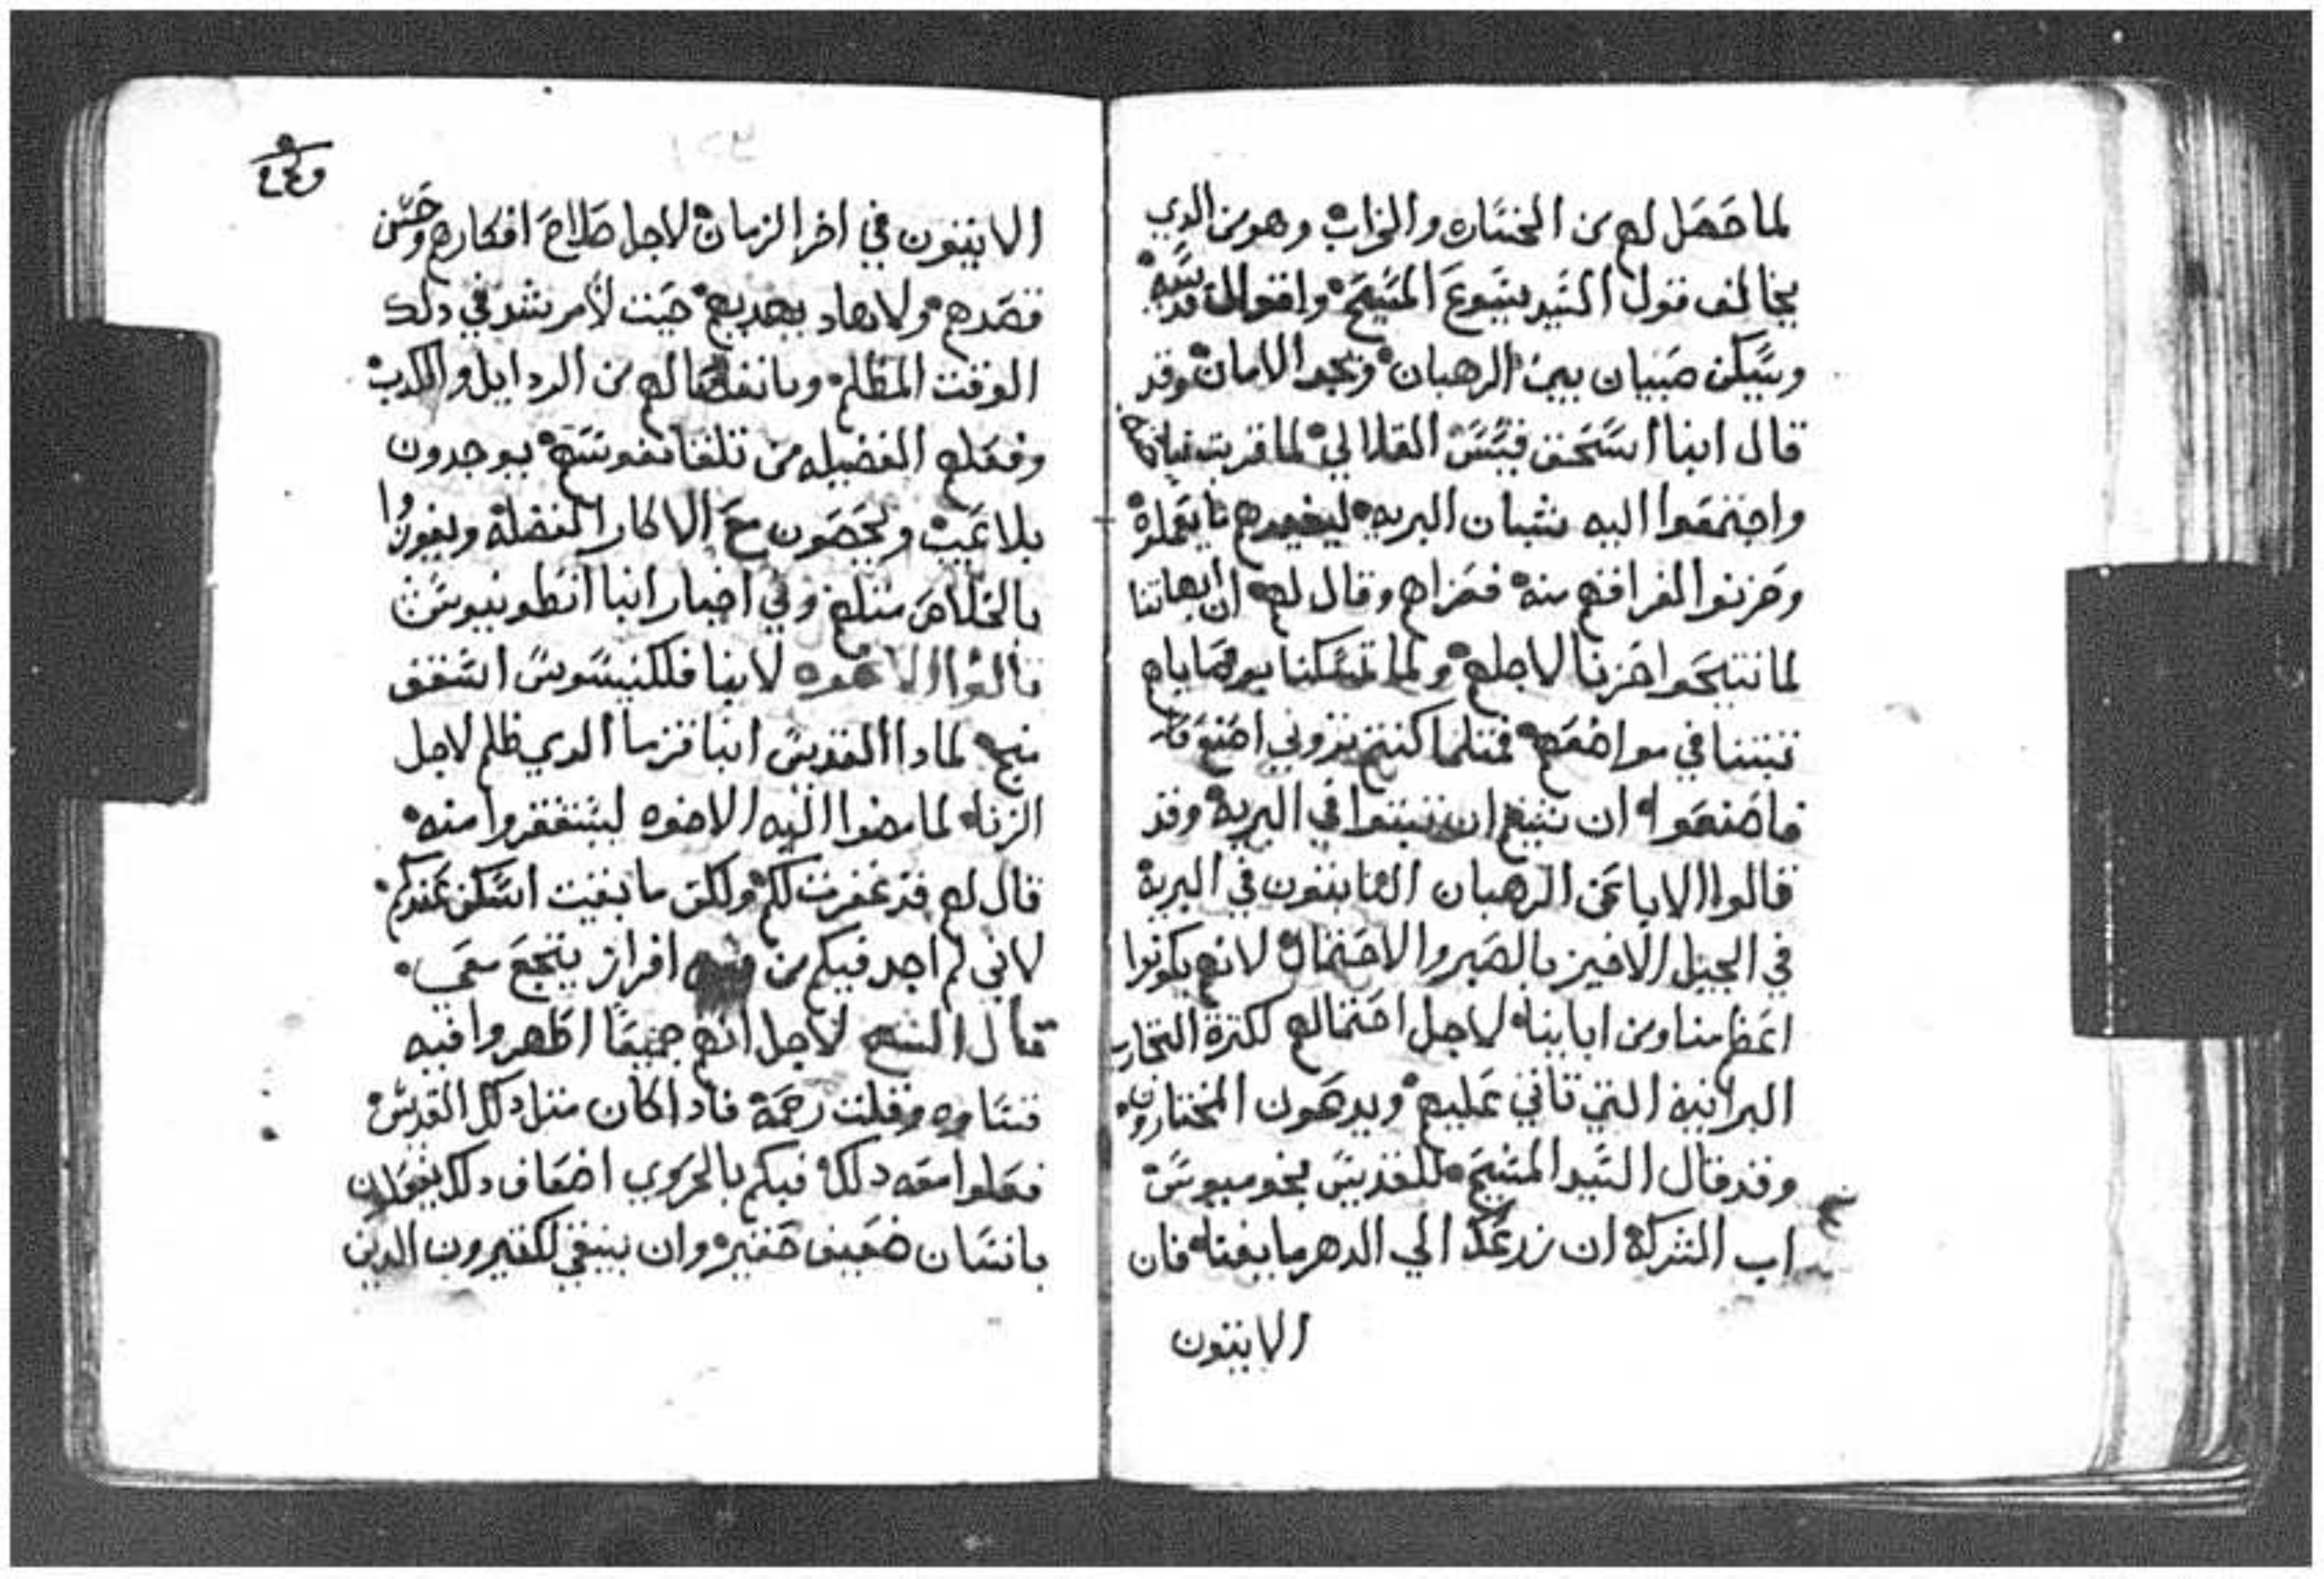 لما حصل لهم من الخساره والخراب وهو من الدي
يخالف قول السيد يسوع المسيح واقوال قديسيه
ويسكن صبيان بين الرهبان ويجد الامان وقد
قال ابنا اسحق قسس القلالي لما قربت نياحته
واجتمعوا اليه شبان البريه ليفيدهم ما يعملوه
وحزنوا لفراقهم منه فعزاهم وقال لهم ان ابهاتنا
لما تنيحوا حزنا لاجلهم ولما تمسكنا بوصاياهم
تبتنا في مواضعهم فمتلما كنتم تروني اصنع
فاصنعوا ان شيتم ان تتبتوا في البرية وقد
قالوا الابا عن الرهبان التابتون في البرية
في الجيل الاخير بالصبر والاحتمال لانهم يكونوا
اعظم منا ومن اباينا لاجل احتمالهم لكترة التجارب
البرانية التي تاتي عليهم ويدعون المختارون
وقد قال السيد المسيح للقديس بخوميوس
اب الشركة ان زرعك الي الدهر ما يفنا فان
التابتون
التابتون في اخر الزمان لاجل صلاح افكارهم وحسن
قصدهم ولا هاد يهديهم حيت لا مرشد في دلك
الوقت المظلم وبانفصالهم من الردايل والكدب
وفعلهم الفضيله من تلقا نفوسهم يوجدون
بلا عيب ويحصون مع الاكابر الفضلة ويفوزوا
بالخلاص متلهم وفي اخبار انبا انطونيوس
قالوا الاخوه لابينا فلكنيسوس اسقف
منبج لمادا القديس ابنا قزما الدي ظلم لاجل
الزنا لما مضوا اليه الاخوه ليستغفروا منه
قال لهم قد غفرت لكم ولكن ما بقيت اسكن عندكم
لاني لم اجد فيكم من افراز يتجع معي
قال الشيخ لاجل انهم جميعا اظهروا فيه
قساوه وقلت رحمة فادا كان متل دلك القديس
فعلوا معه دلك فيكم بالحروي اضعاف دلك يفعلون
بانسان ضعيف حقير وان ينبغي لكتيرون الدين